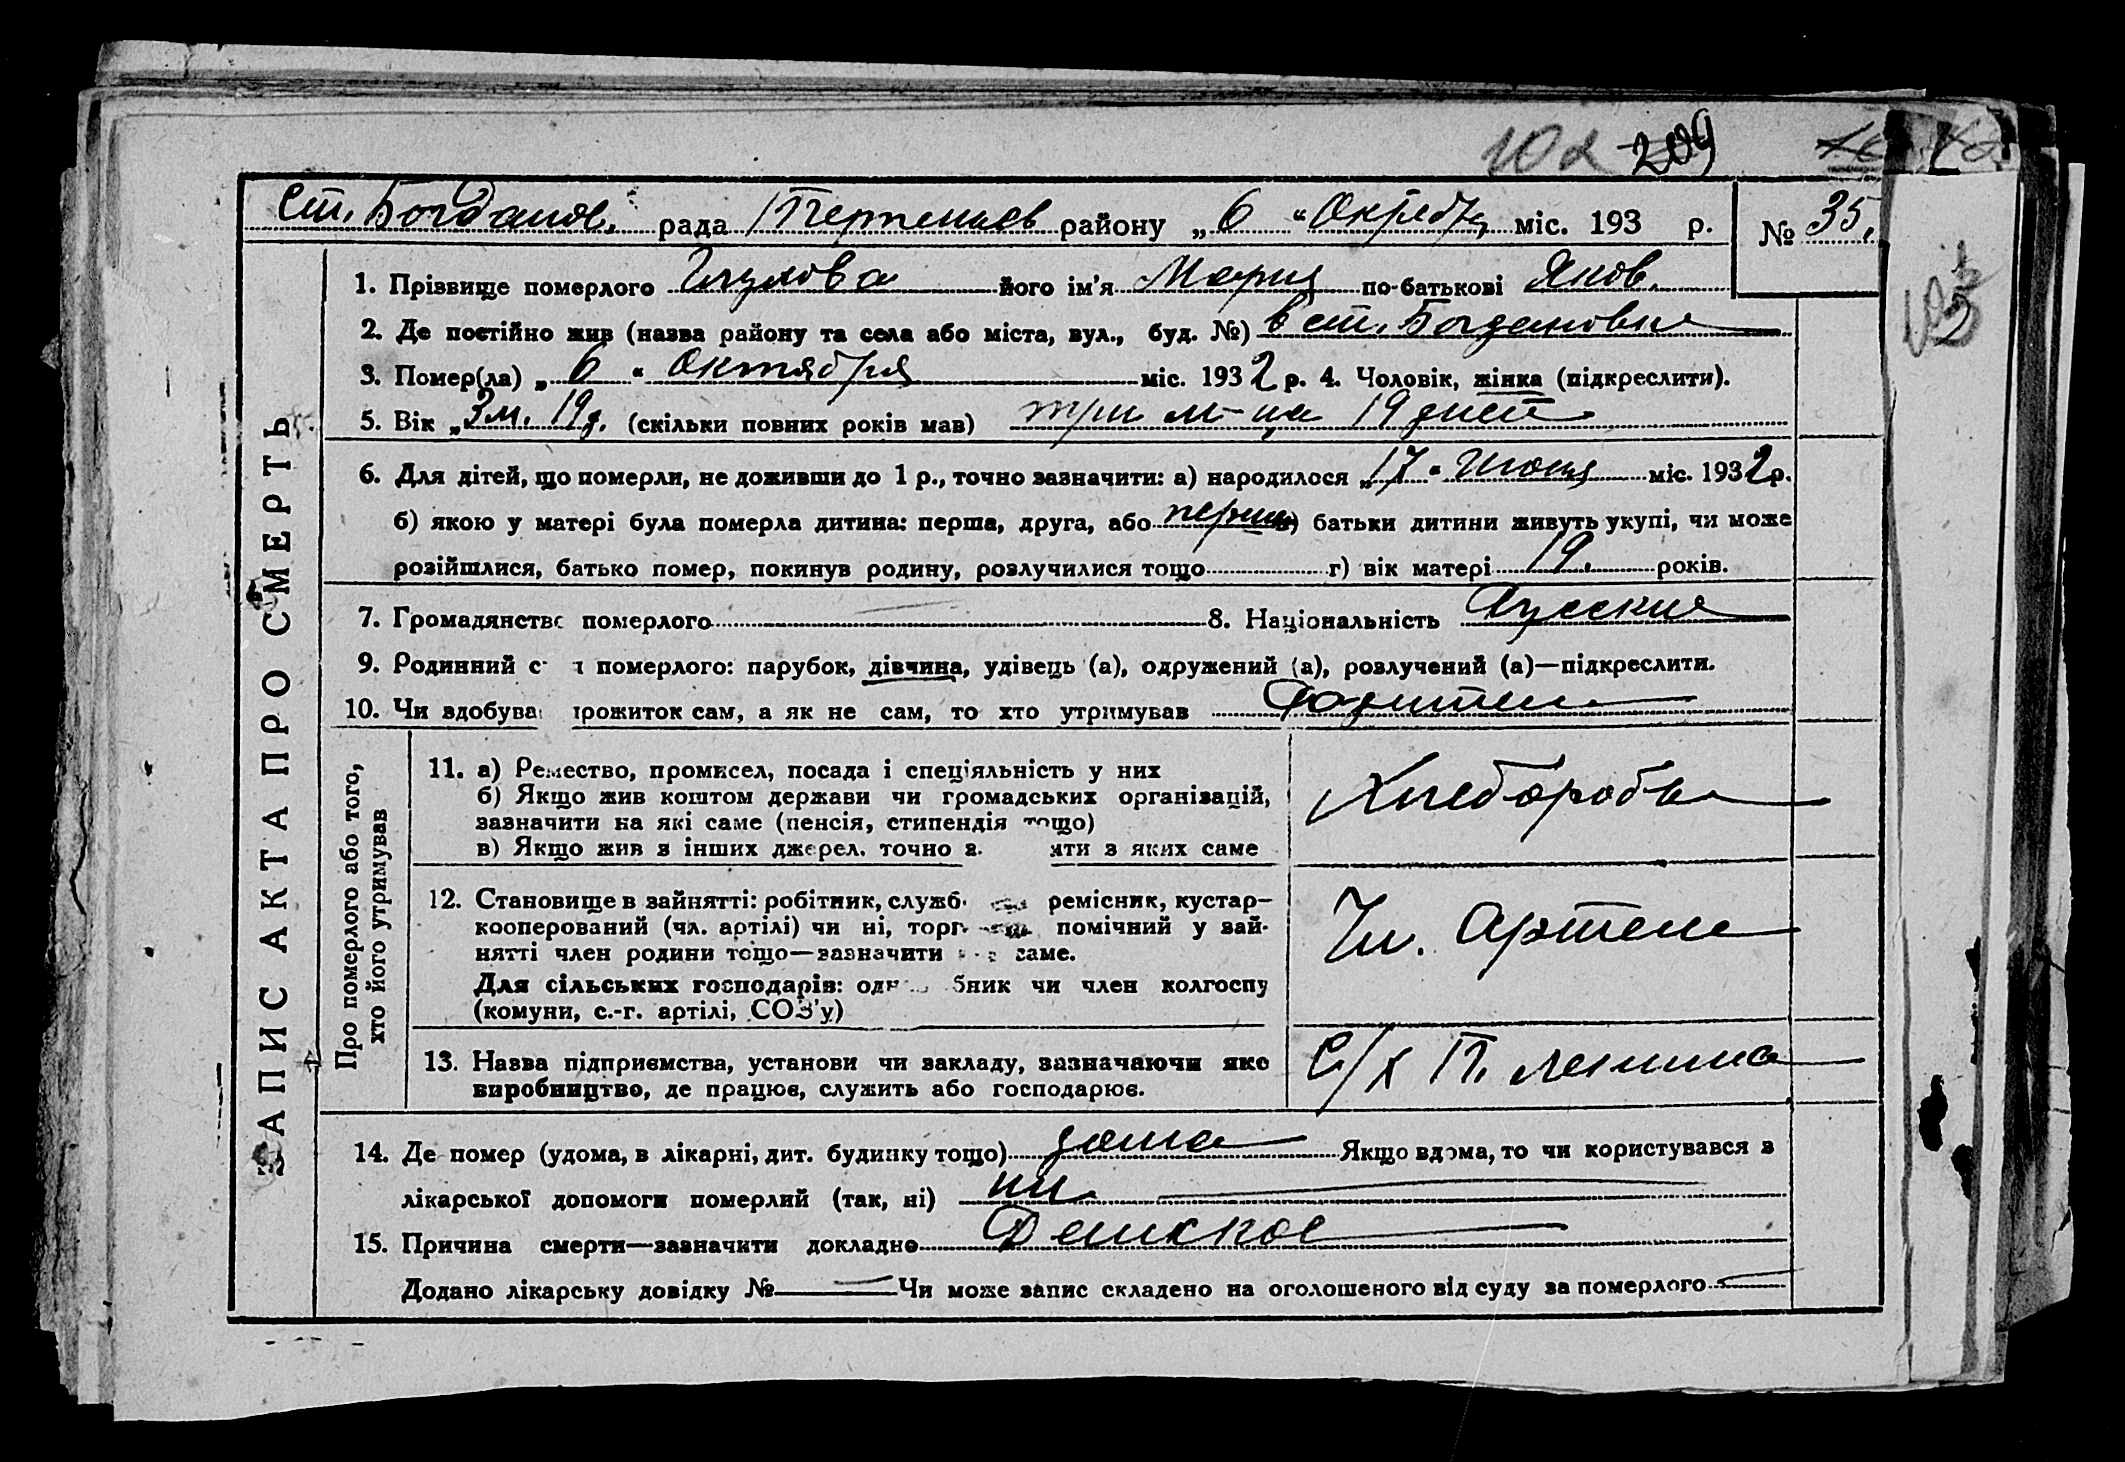 102 209
Ст. Богданов. рада Терпеньев району „ 6 “ Октябр. міс. 193 р. № 35.
1. Прізвище померлого його ім'я Мария по-батькові Яков.
2. Де постійно жив (назва району та села або міста, вул., буд. №) в ст. Богдановке
3. Помер(ла) „ 6 “ Октября міс. 1932 р. 4. Чоловік, жінка (підкреслити).
5. Вік „ 3 м. 19 д. (скільки повних років мав) три м-ца 19 дней
6. Для дітей, що померли, не доживши до 1 р., точно зазначити: а) народилося „ 17 “ Июня міс. 1932 р.
б) якою у матері була померла дитина: перша, друга, або первый в) батьки дитини живуть укупі, чи може
розійшлися, батько помер, покинув родину, розлучилися тощо г) вік матері 19. років.
7. Громадянство померлого — 8. Національність Русские
9. Родинний с я померлого: парубок, дівчина, удівець (а), одружений (а), розлучений (а)—підкреслити.
10. Чи здобува прожиток сам, а як не сам, то хто утримував Родители
ЗАПИС АКТА ПРО СМЕРТЬ
Про померлого або того,
хто його утримував
11. а) Ремество, промисел, посада і спеціяльність у них
б) Якщо жив коштом держави чи громадських організацій,
зазначити на які саме (пенсія, стипендія тощо)
в) Якщо жив з інших джерел, точно з яти з яких саме
Хлеборобы
12. Становище в зайнятті: робітник, служб ремісник, кустар-
кооперований (чл. артілі) чи ні, торг помічний у зай-
нятті член родини тощо—зазначити саме.
Для сільських господарів: одн бник чи член колгоспу
(комуни, с.-г. артілі, СОЗ'у)
Чл. Артели
13. Назва підприємства, установи чи закладу, зазначаючи яке
виробництво, де працює, служить або господарює.
С/х П. Ленина
14. Де помер (удома, в лікарні, дит. будинку тощо) дома Якщо вдома, то чи користувався з
лікарської допомоги померлий (так, ні) ни
15. Причина смерти—зазначити докладно Детское
Додано лікарську довідку № — Чи може запис складено на оголошеного від суду за померлого —